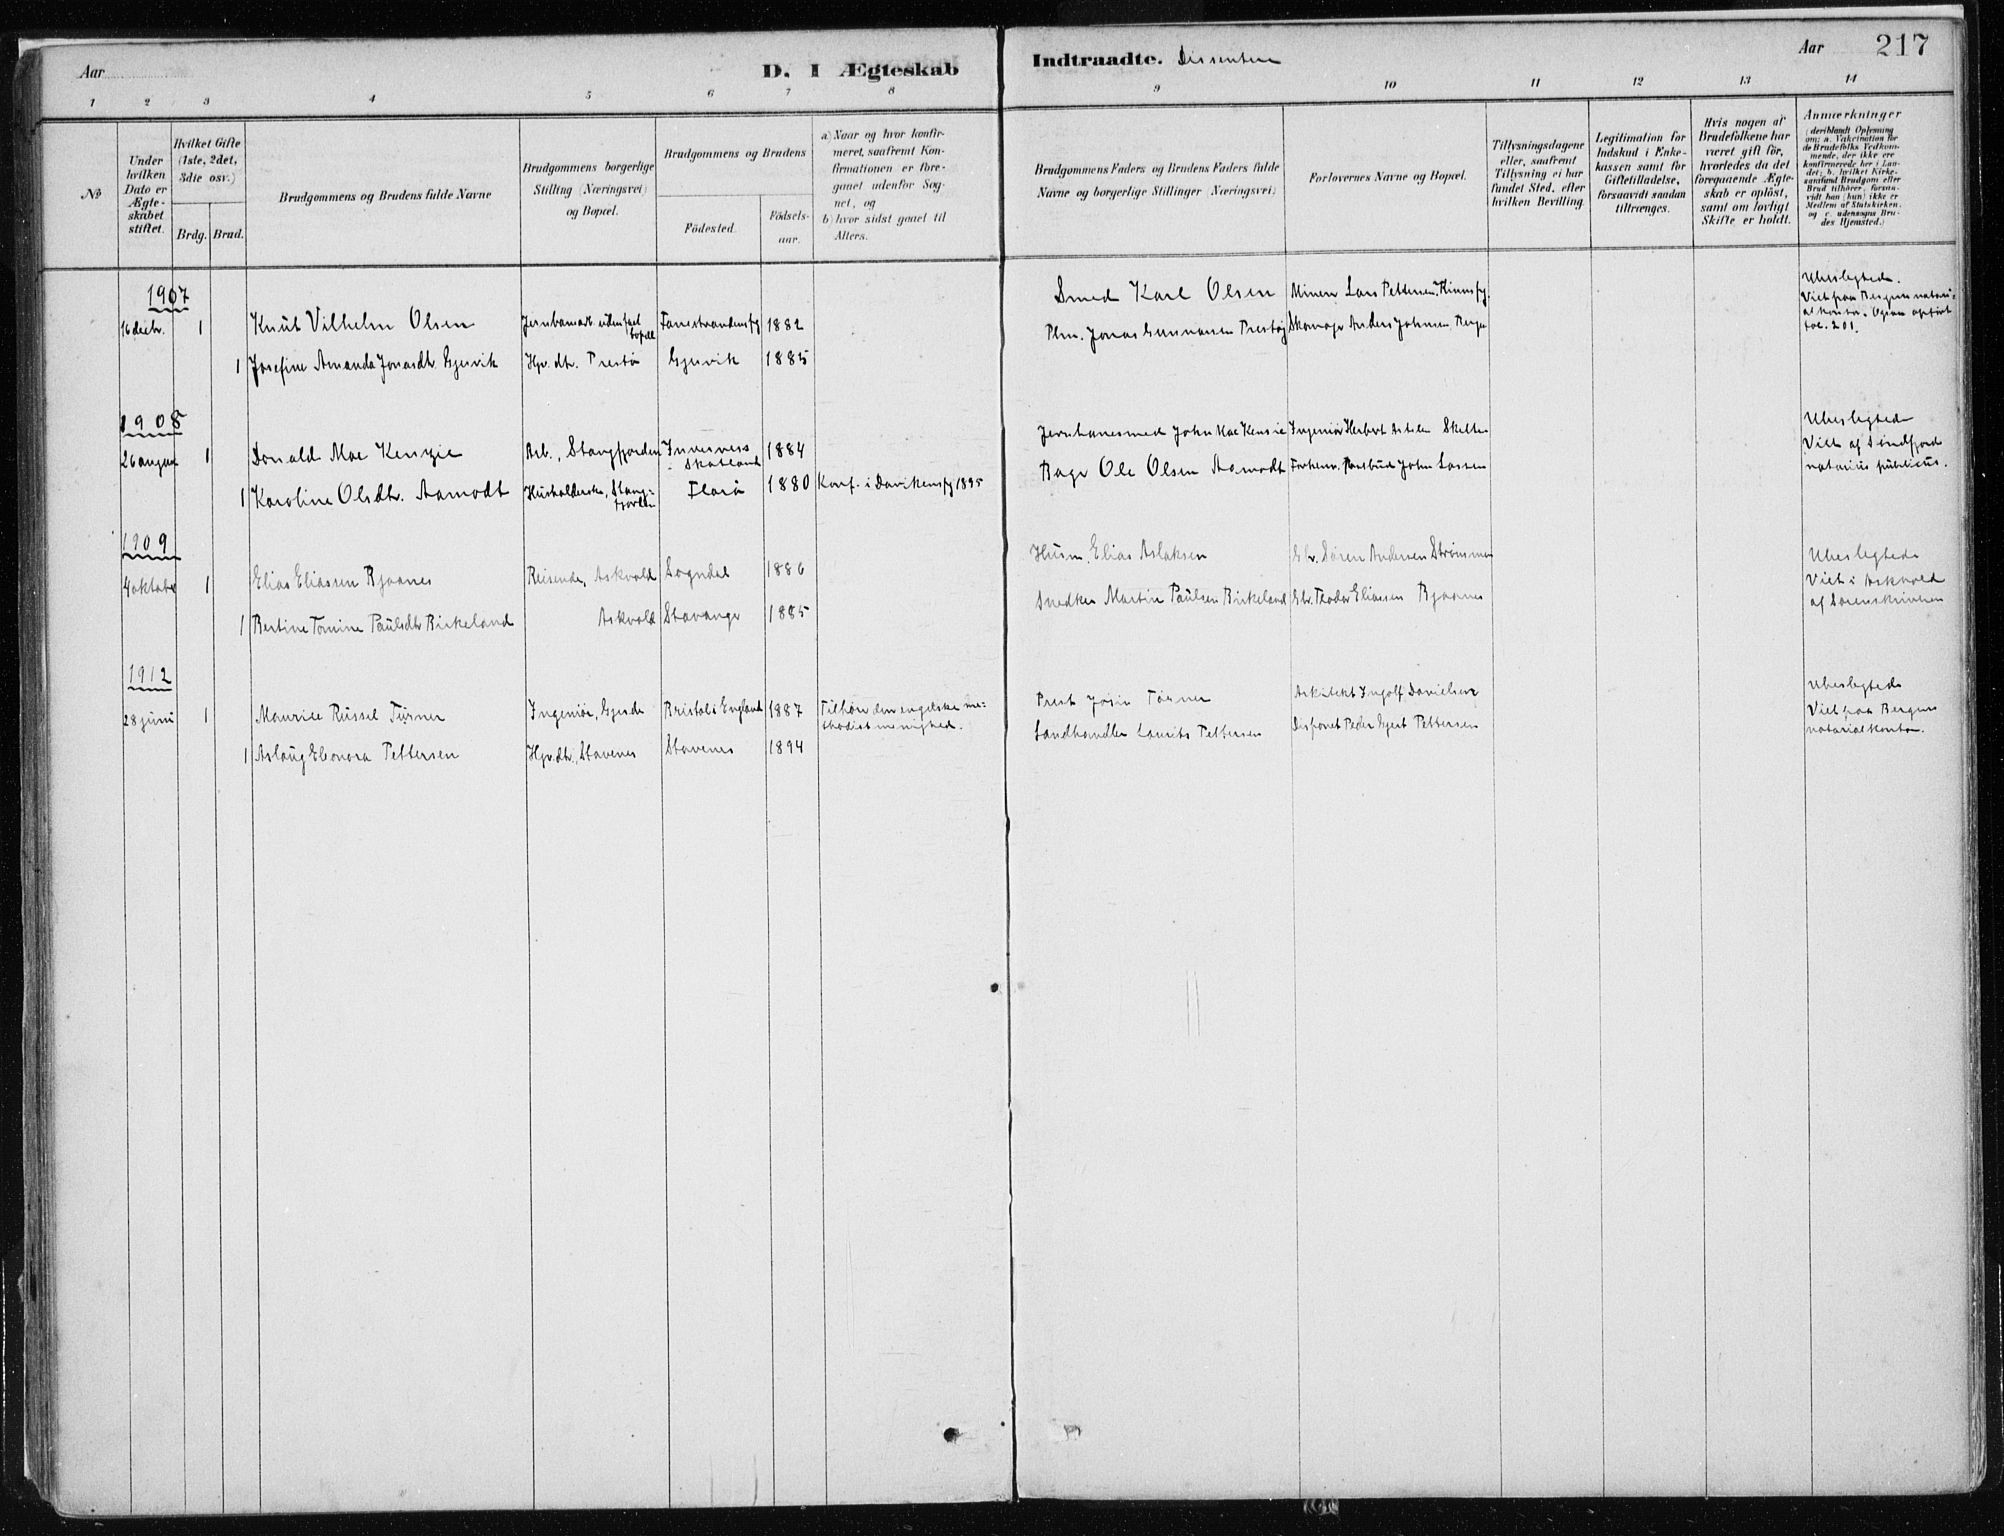 Aar
D. I Ægteskab
Indtraadte. Dissentere
Aar 217
1 2 3 4 5 6 7 8 9 10 11 12 13 14
No
Under
hvilken
Dato er
Ægte-
skabet
stiftet.
Hvilket Gifte
(1ste, 2det,
3die osv.)
Brdg. Brud.
Brudgommens og Brudens fulde Navne
Brudgommens borgerlige
Stilling (Næringsvei)
og Bopæl.
Brudgommens og Brudens
Födested.
Födsels-
aar.
a) Naar og hvor konfir-
meret, saafremt Kon-
firmationen er fore-
gaaet udenfor Sog-
net, og
b) hvor sidst gaaet til
Alters.
Brudgommens Faders og Brudens Faders fulde
Navne og borgerlige Stillinger (Næringsvei)
Forlovernes Navne og Bopæl.
Tillysningsdagene
eller, saafremt
Tillysning ei har
fundet Sted, efter
hvilken Bevilling.
Legitimation for
Indskud i Enke-
kassen samt for
Giftetilladelse,
forsaavidt saadan
tiltrænges.
Hvis nogen af
Brudefolkene har
været gift för,
hvorledes da det
foregaaende Ægte-
skab er oplöst,
samt om lovligt
Skifte er holdt.
Anmærkninger
(deriblandt Oplysning
om: a. Vakcination for
de Brudefolks Vedkom-
mende, der ikke ere
konfirmerede her i Lan-
det; b. hvilket Kirke-
samfund Brudgom eller
Brud tilhörer, forsaa-
vidt han (hun) ikke er
Medlem af Statskirken,
og c. udensogns Bru-
des Hjemsted.)
1907
16 decbr. 1 Knut Vilhelm Olsen
1882
Smed Karl Olsen
Minerer Lars Pettersen, Kinnsfg.
Ubeslegtede.
Viet paa Bergens notari-
alkontor. Ogsaa opført
fol. 201.
1 Josefine Amanda Jonasdtr. Gjesvik
Hpr. dtr. Prestø
Gjesvik 1885
Plm. Jonas Gunnarsen Prestøy
Skomager Anders Johnsen, Bergen
1908
26 august 1 Donald Mac Kenzie
Arb., Stangfjorden
Inverness
i Skotland
1884
Jernbanesmed John Mac Kensie
Ingeniør Herbert
Skelton
Ubeslegtede
Viet af Søndfjord
notarius publicus.
1 Karoline Olsdtr. Aamodt
Husholderske, Stang-
fjorden
Florø 1880 Konf. i Davikens fg 1895
Bager Ole Olsen Aamodt
John Lassen
1909
4 oktober 1 Elias Eliassen Bjaanes
Reisende, Askvold Sogndal 1886
Husm. Elias Aslaksen
Gbr. Søren Andersen Strømmen
Ubeslegtede
Viet i Askvold
af Sorenskriveren
1 Bertine Tomine Paulsdtr Birkeland
Askvold Stavanger 1885
Snedker Martin Paulsen Birkeland
Gbr. Thodor Eliassen Bjaanes
1912
28 juni 1 Maurice Russel Turner
Ingeniør, Gjesde Bristol i England 1887 Tilhører den engelske me-
thodistmenighed.
Prest Josia Turner
Arkitekt Ingolf Danielsen
Ubeslegtede
Viet paa Bergens
notarialkontor.
1 Aslaug Eleonora Pettersen
Hpr. dtr., Stavenes Stavenes 1894
Landhandler Laurits Pettersen
Disponet Peder Gjert Pettersen